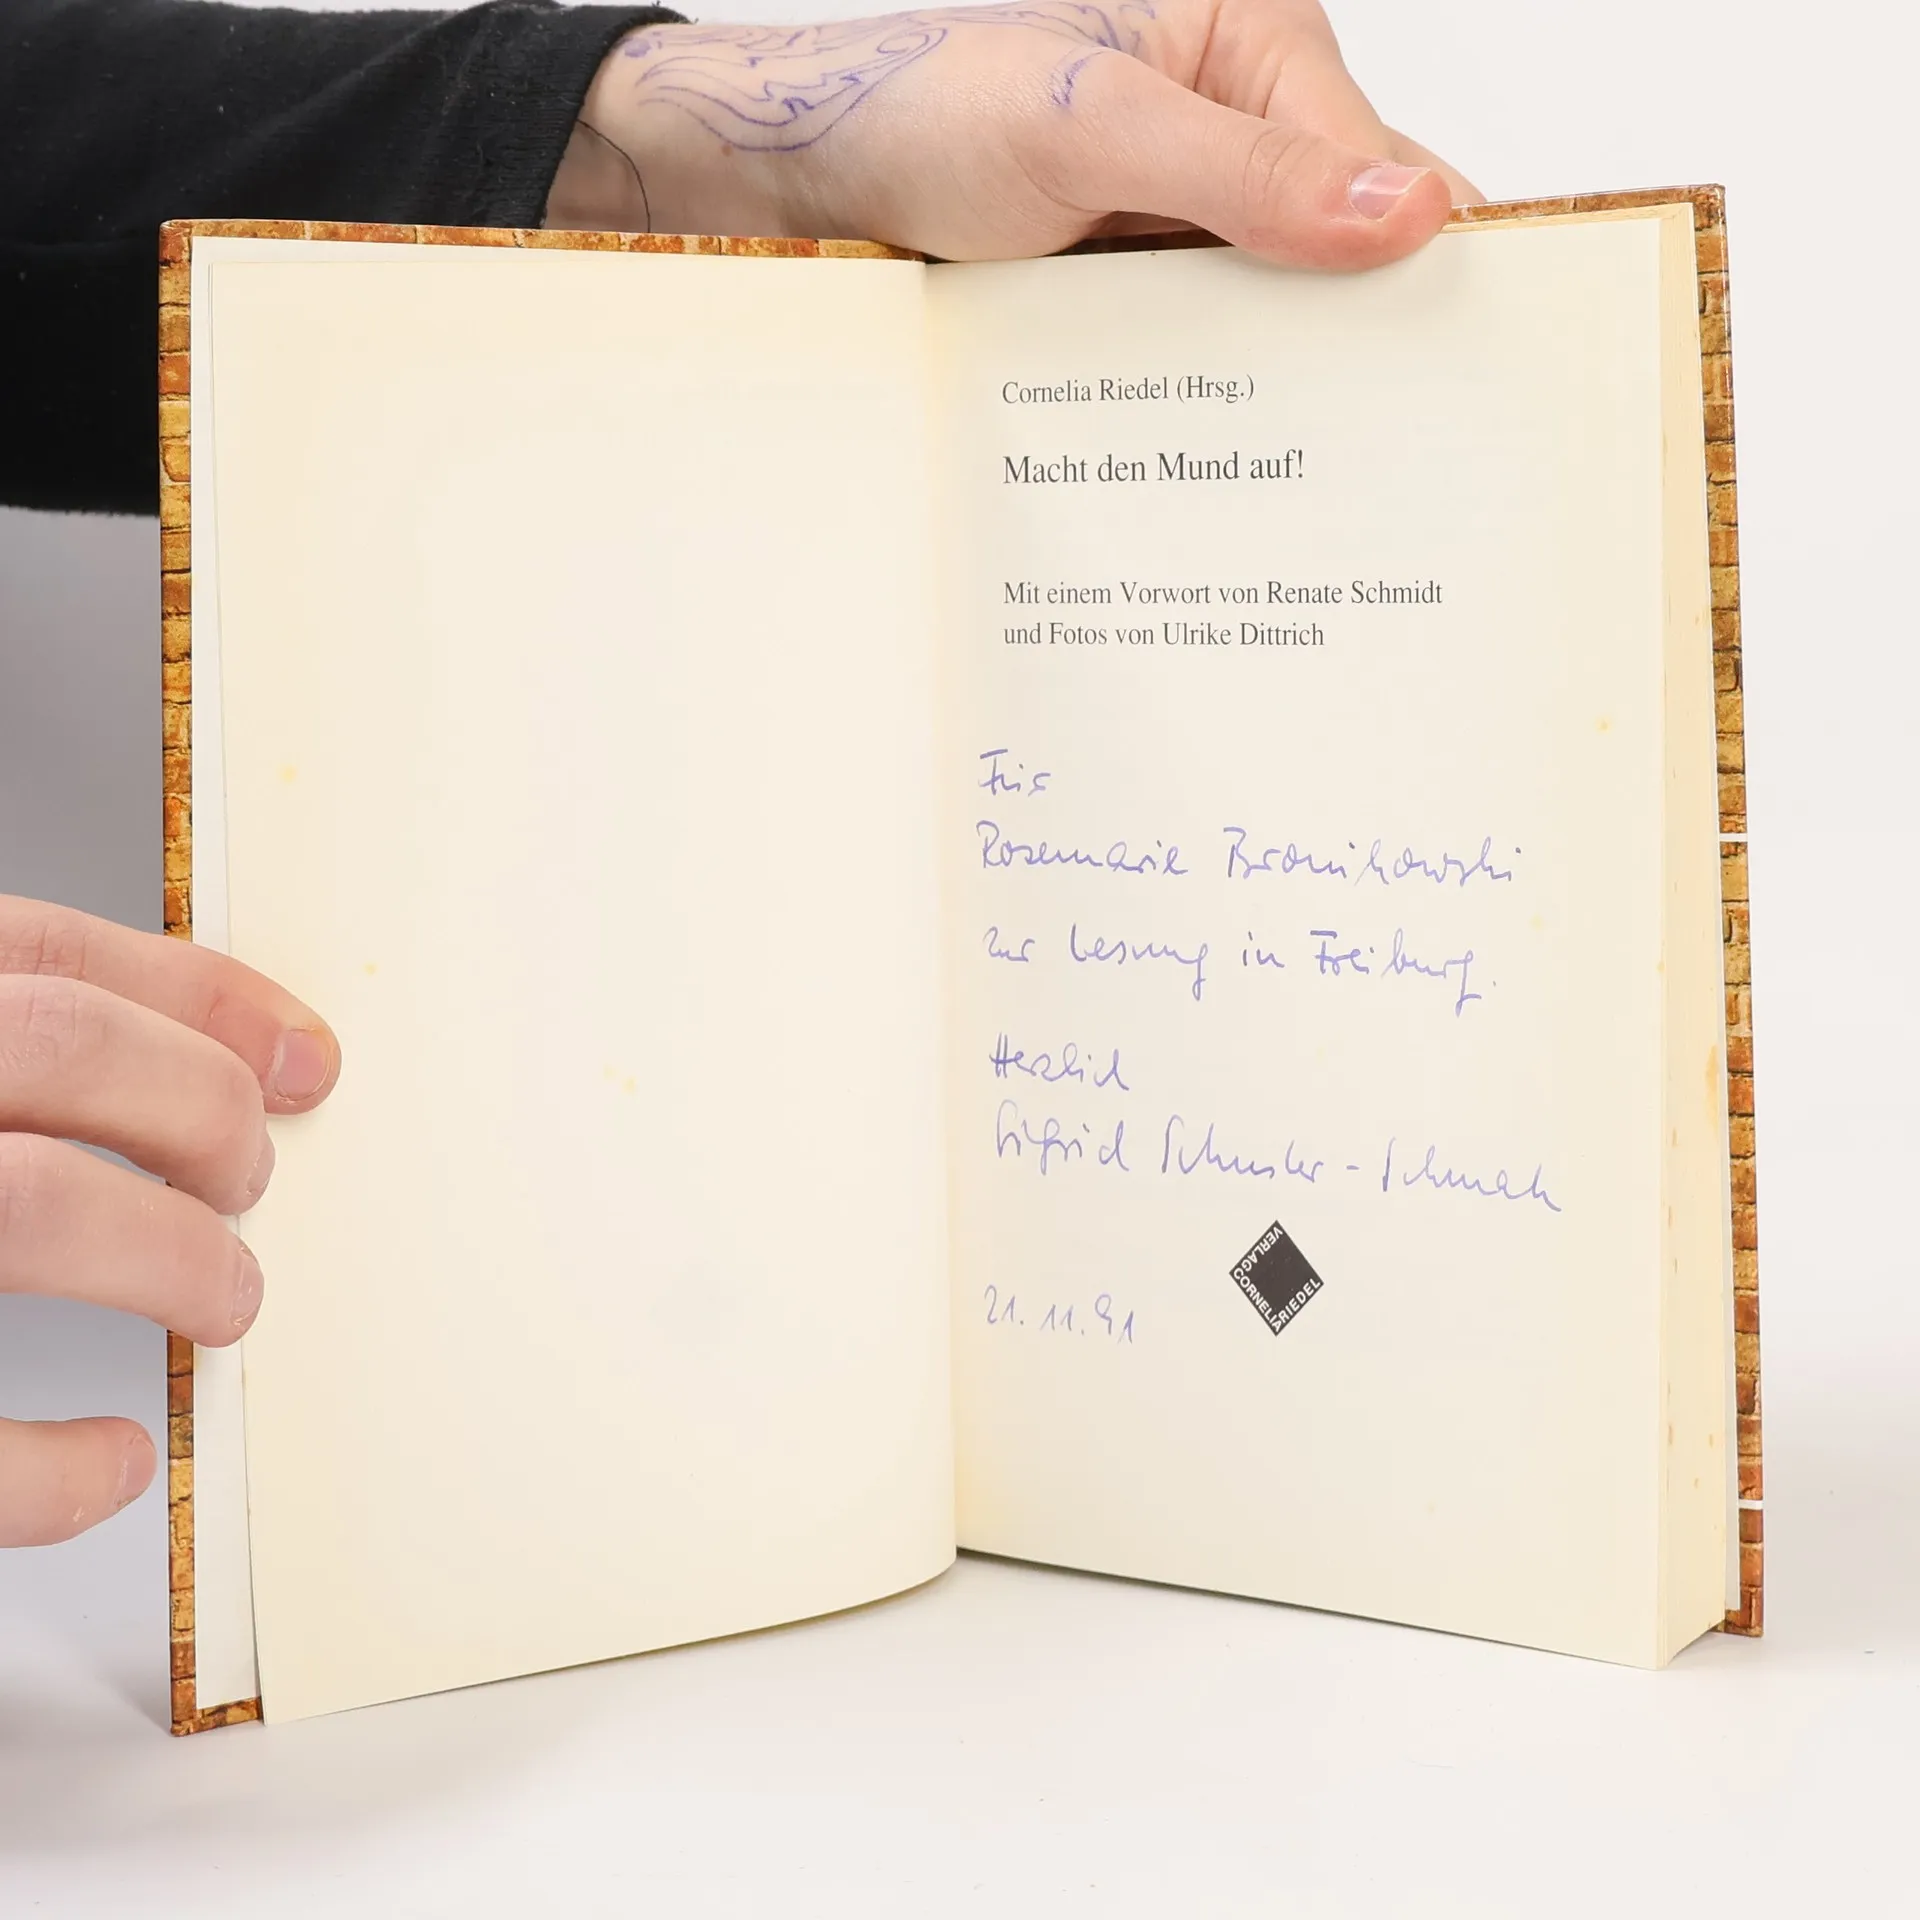 Cornelia Riedel (Hrsg.)
Macht den Mund auf!
Mit einem Vorwort von Renate Schmidt
und Fotos von Ulrike Dittrich
Für
Rosemarie Bronikowski
zur Lesung in Freiburg.
Herzlich
Sigrid Schuster-Schmah
21.11.91
VERLAG
CORNELIA
RIEDEL